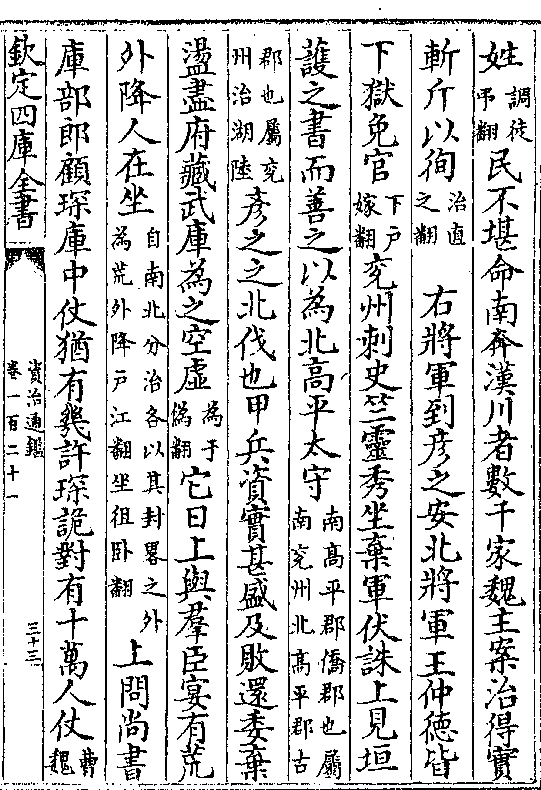 姓調徒弔翻民不堪命南奔漢川者數千家魏主案治得實
斬斤以徇治直之翻　右將軍到彦之安北將軍王仲徳皆
下獄免官下戸嫁翻兖州刺史竺靈秀坐棄軍伏誅上見垣
護之書而善之以為北高平太守南高平郡僑郡也屬南兖州北高平郡古
郡也屬兖州治湖陸彦之之北伐也甲兵資實甚盛及敗還委棄
盪盡府藏武庫為之空虚為于偽翻它日上與羣臣宴有荒
外降人在坐自南北分治各以其封畧之外為荒外降戸江翻坐徂卧翻上問尚書
庫部郎顧琛庫中仗猶有幾許琛詭對有十萬人仗曹魏
欽定四庫全書
資治通鑑
卷一百二十一
三十三